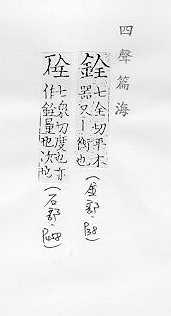 四聲篇海
銓
七全切平木
器又丨衡也
(金部,P38)
硂
七泉切度也亦
作銓量也次也
(石部, P458)